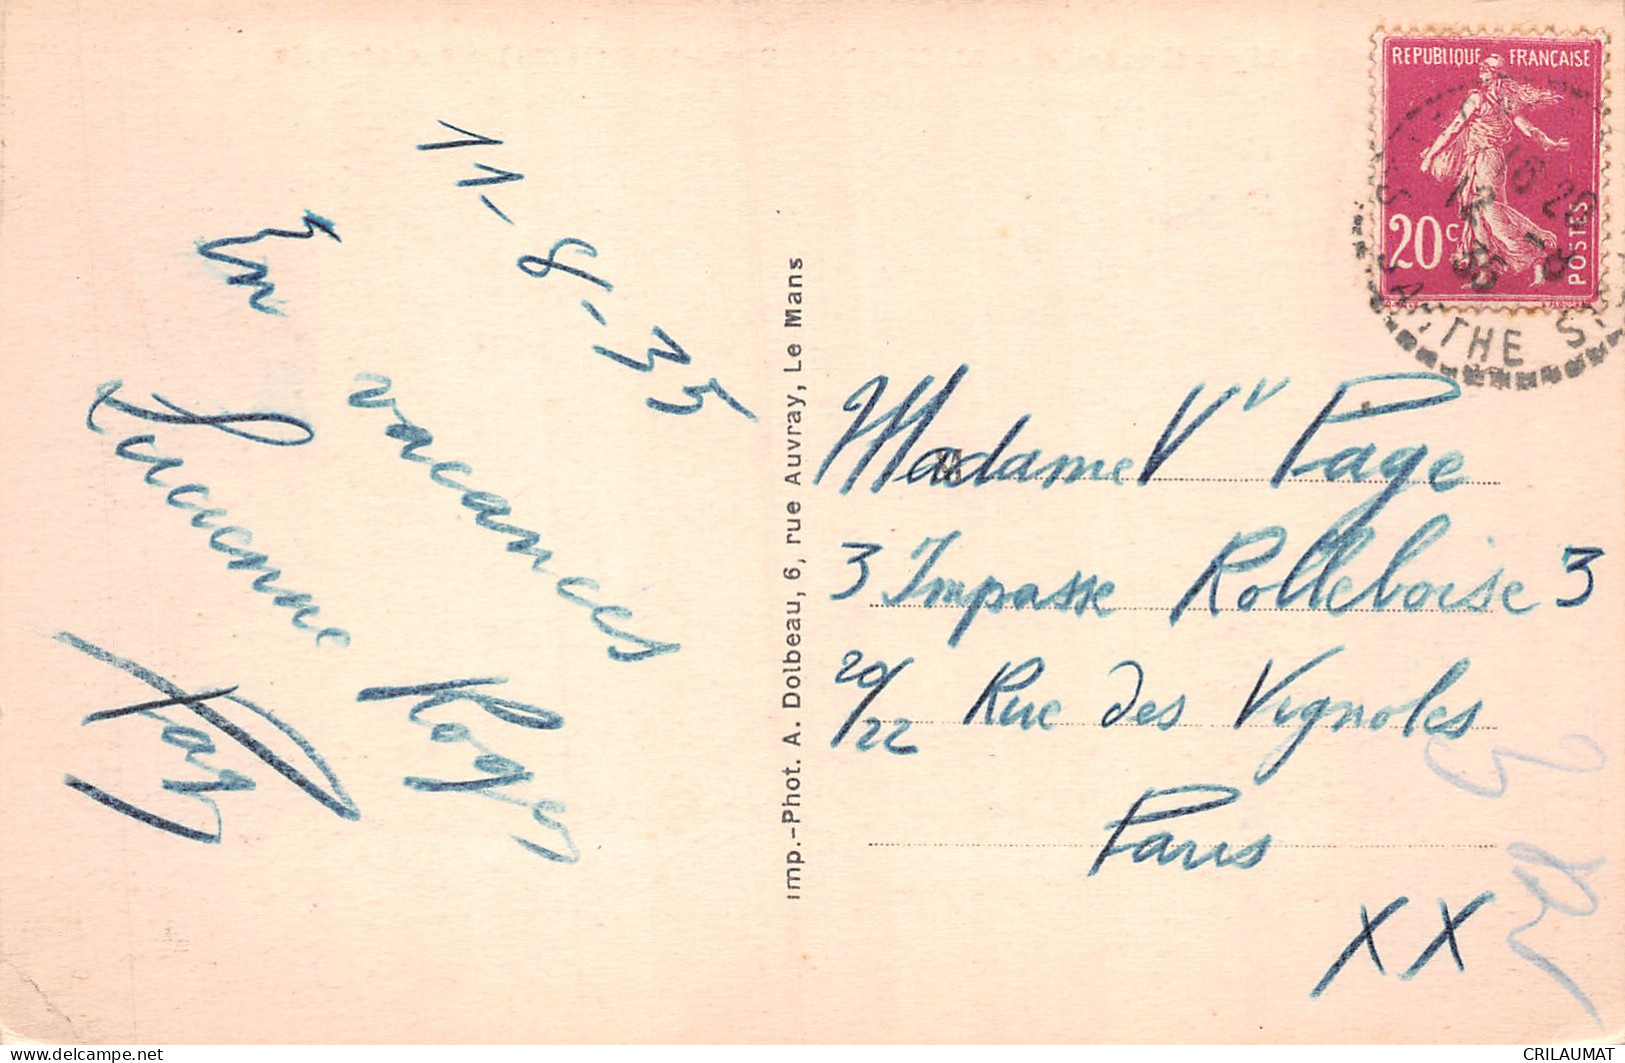 11-8-35
En vacances
Lucienne Roger
Page
Imp.-Phot. A. Dolbeau, 6, rue Auvray, Le Mans
REPUBLIQUE FRANÇAISE
20c
POSTES
18 20
12 8
35
THE S
Madame Vv Page
3 Impasse Rolleboise 3
20/22 Rue des Vignoles
Paris
XX
delcampe.net
CRILAUMAT